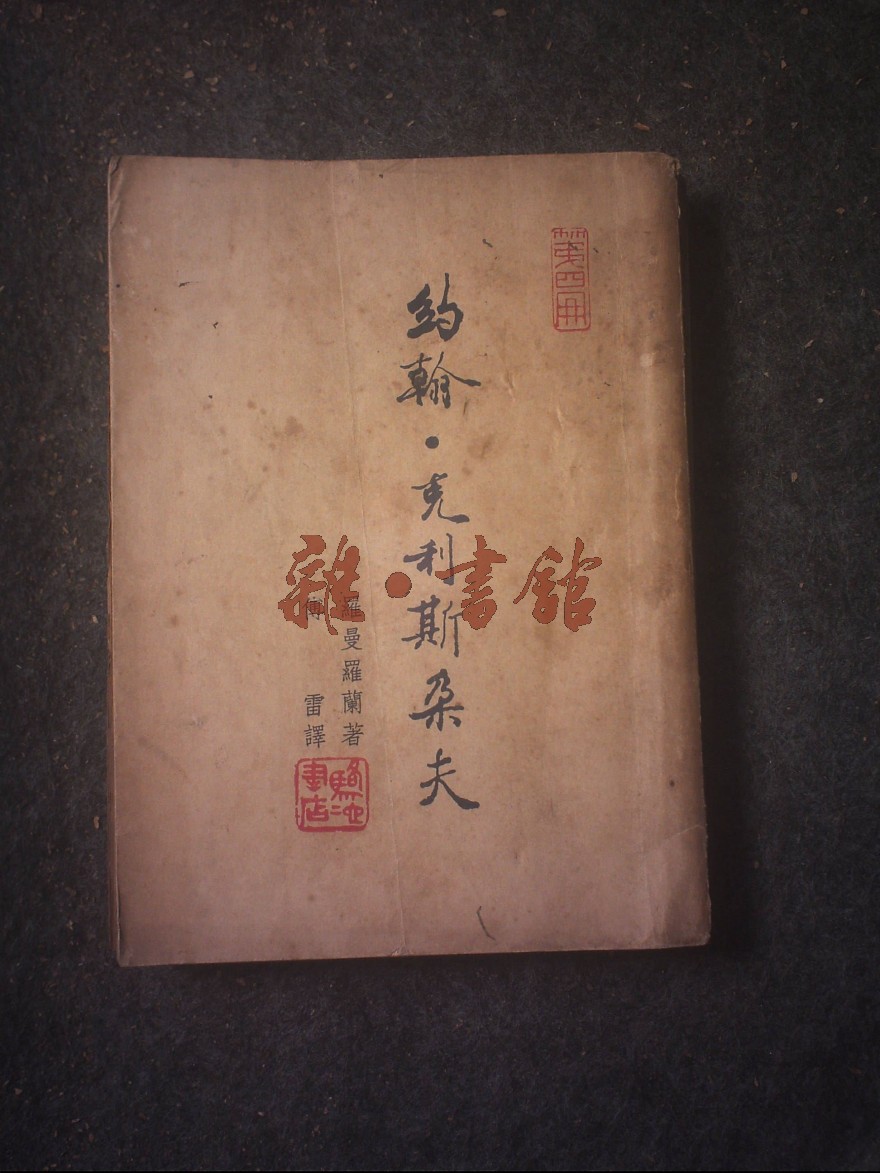 第四冊
約翰·克利斯朵夫
羅曼羅蘭著
傅雷譯
駱駝書店
雜·書館